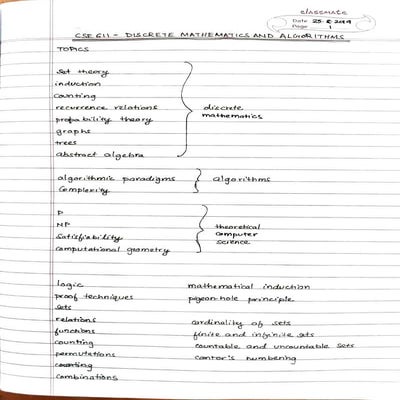 classmate
Date 25-8-2019
Page 1
CSE 611 - DISCRETE MATHEMATICS AND ALGORITHMS
TOPICS
set theory
induction
counting
recurrence relations
probability theory
graphs
trees
abstract algebra
discrete
mathematics
algorithmic paradigms
complexity
algorithms
P
NP
Satisfiability
computational geometry
theoretical
computer
science
logic
proof techniques
sets
relations
functions
counting
permutations
counting
combinations
mathematical induction
pigeon-hole principle
cardinality of sets
finite and infinite sets
countable and uncountable sets
cantor's numbering